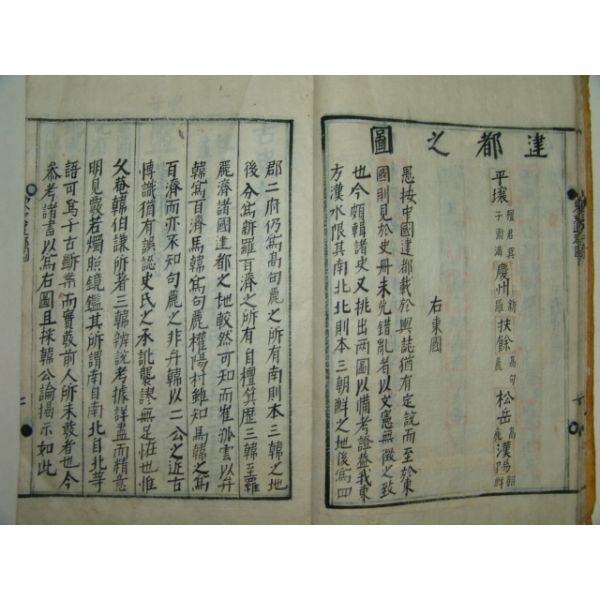 建都之圖
平壤 檀君箕子衛滿 慶州 新羅 扶餘 松岳 高麗 漢陽 朝鮮
右東國
愚按中國建都載於輿誌猶有定說而至於東
國則見於史冊未免錯亂者以文憲無徵之致
也今頗輯諸史又挑出兩圖以備考證盖我東
方漢水限其南北北則本三朝鮮之地後爲四
郡二府仍爲高句麗之所有南則本三韓之地
後分爲新羅百濟之所有自檀箕歷三韓至羅
麗濟諸國建都之地較然可知而崔孤雲以弁
韓爲百濟馬韓爲句麗權陽村雖知馬韓之爲
百濟而亦不知句麗之非弁韓以二公之近古
博識猶有誤認史氏之承訛襲謬無足怪也惟
久菴韓伯謙所著三韓辨說考據詳盡而精意
明見發若燭照鏡鑑其所謂南自南北自北等
語可爲千古斷案而實發前人所未發者也今
參考諸書以爲右圖且採韓公論揭示如此